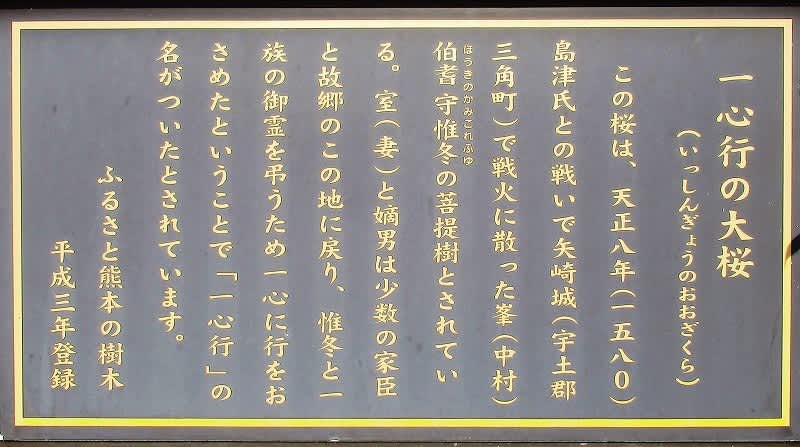 一心行の大桜
（いっしんぎょうのおおざくら）
この桜は、天正八年（一五八〇）
島津氏との戦いで矢崎城（宇土郡
三角町）で戦火に散った峯（中村）
ほうきのかみこれふゆ
伯耆守惟冬の菩提樹とされてい
る。室（妻）と嫡男は少数の家臣
と故郷のこの地に戻り、惟冬と一
族の御霊を弔うため一心に行をお
さめたということで「一心行」の
名がついたとされています。
ふるさと熊本の樹木
平成三年登録